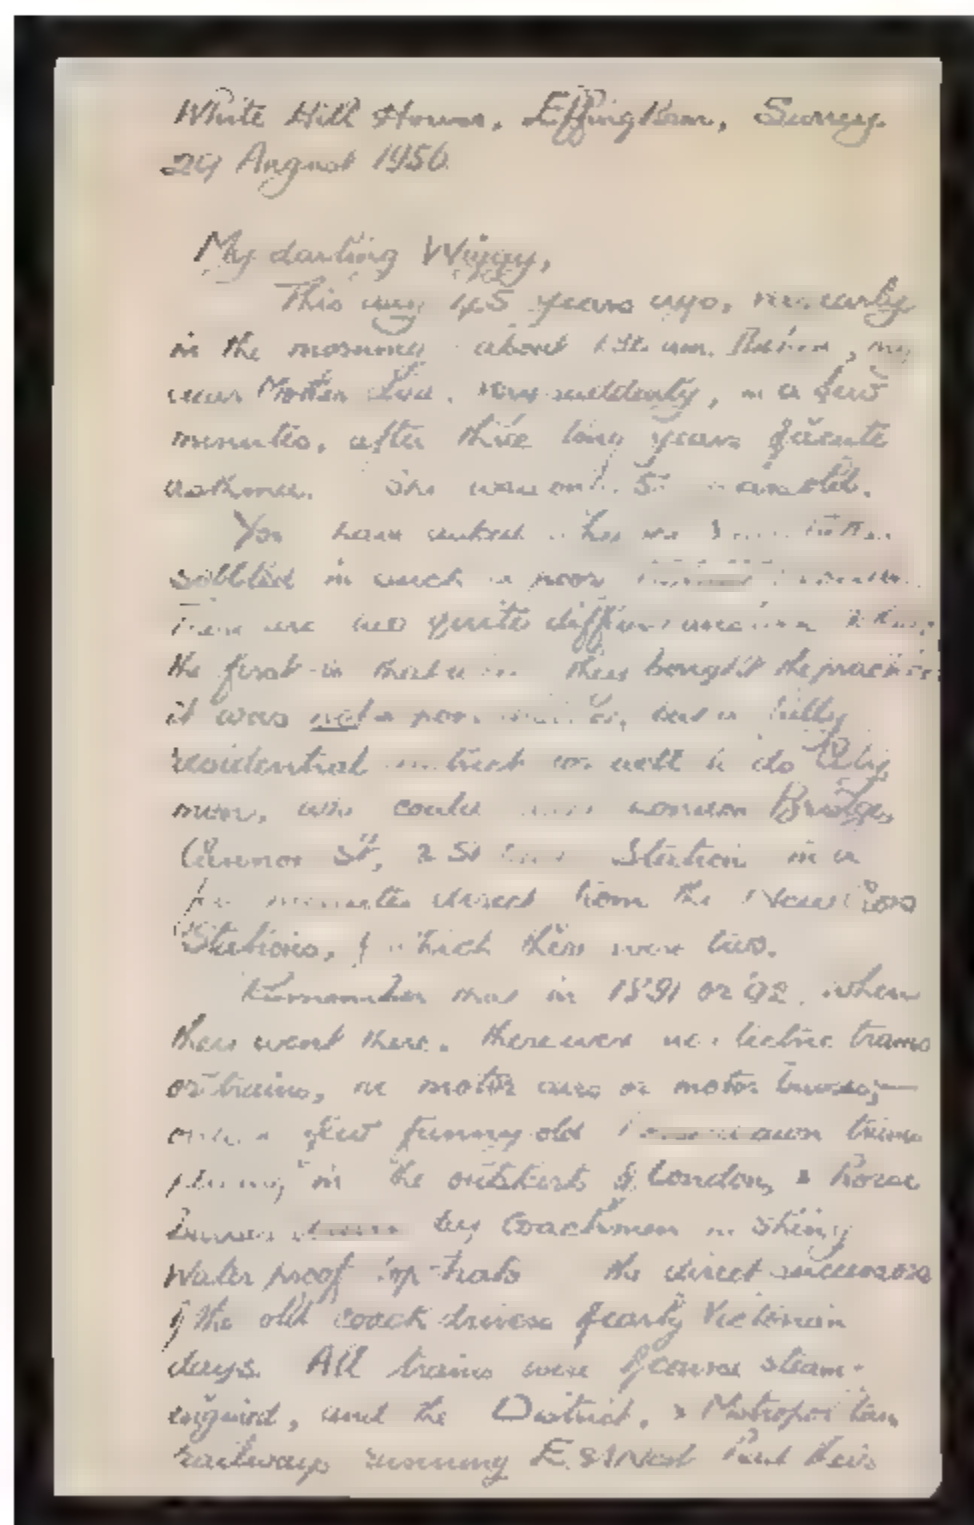 White Hill House, Effingham, Surrey.
29 August 1956
My darling Wiggy,
This day 45 years ago, early
in the morning about am. my
dear Mother died. Very suddenly, in a few
minutes, after three long years of acute
asthma. She was only
You have asked
settled in such a poor
There are two quite different
the first is that when they bought the practice
it was not a poor but a hilly
residential district for well to do City
men, who could London Bridge,
Cannon St, & St Station in a
few minutes direct from the New Cross
Stations, of which there were two.
Remember that in 1891 or '92, when
they went there, there were no electric trams
or trains, no motor cars or motor buses;—
only a few funny old trams
in the outskirts of London, & horse
buses driven by coachmen in shiny
waterproof top-hats the direct successors
of the old coach drivers of early Victorian
days. All trains were of course steam-
engined, and the District, & Metropolitan
railways running E. & West had their